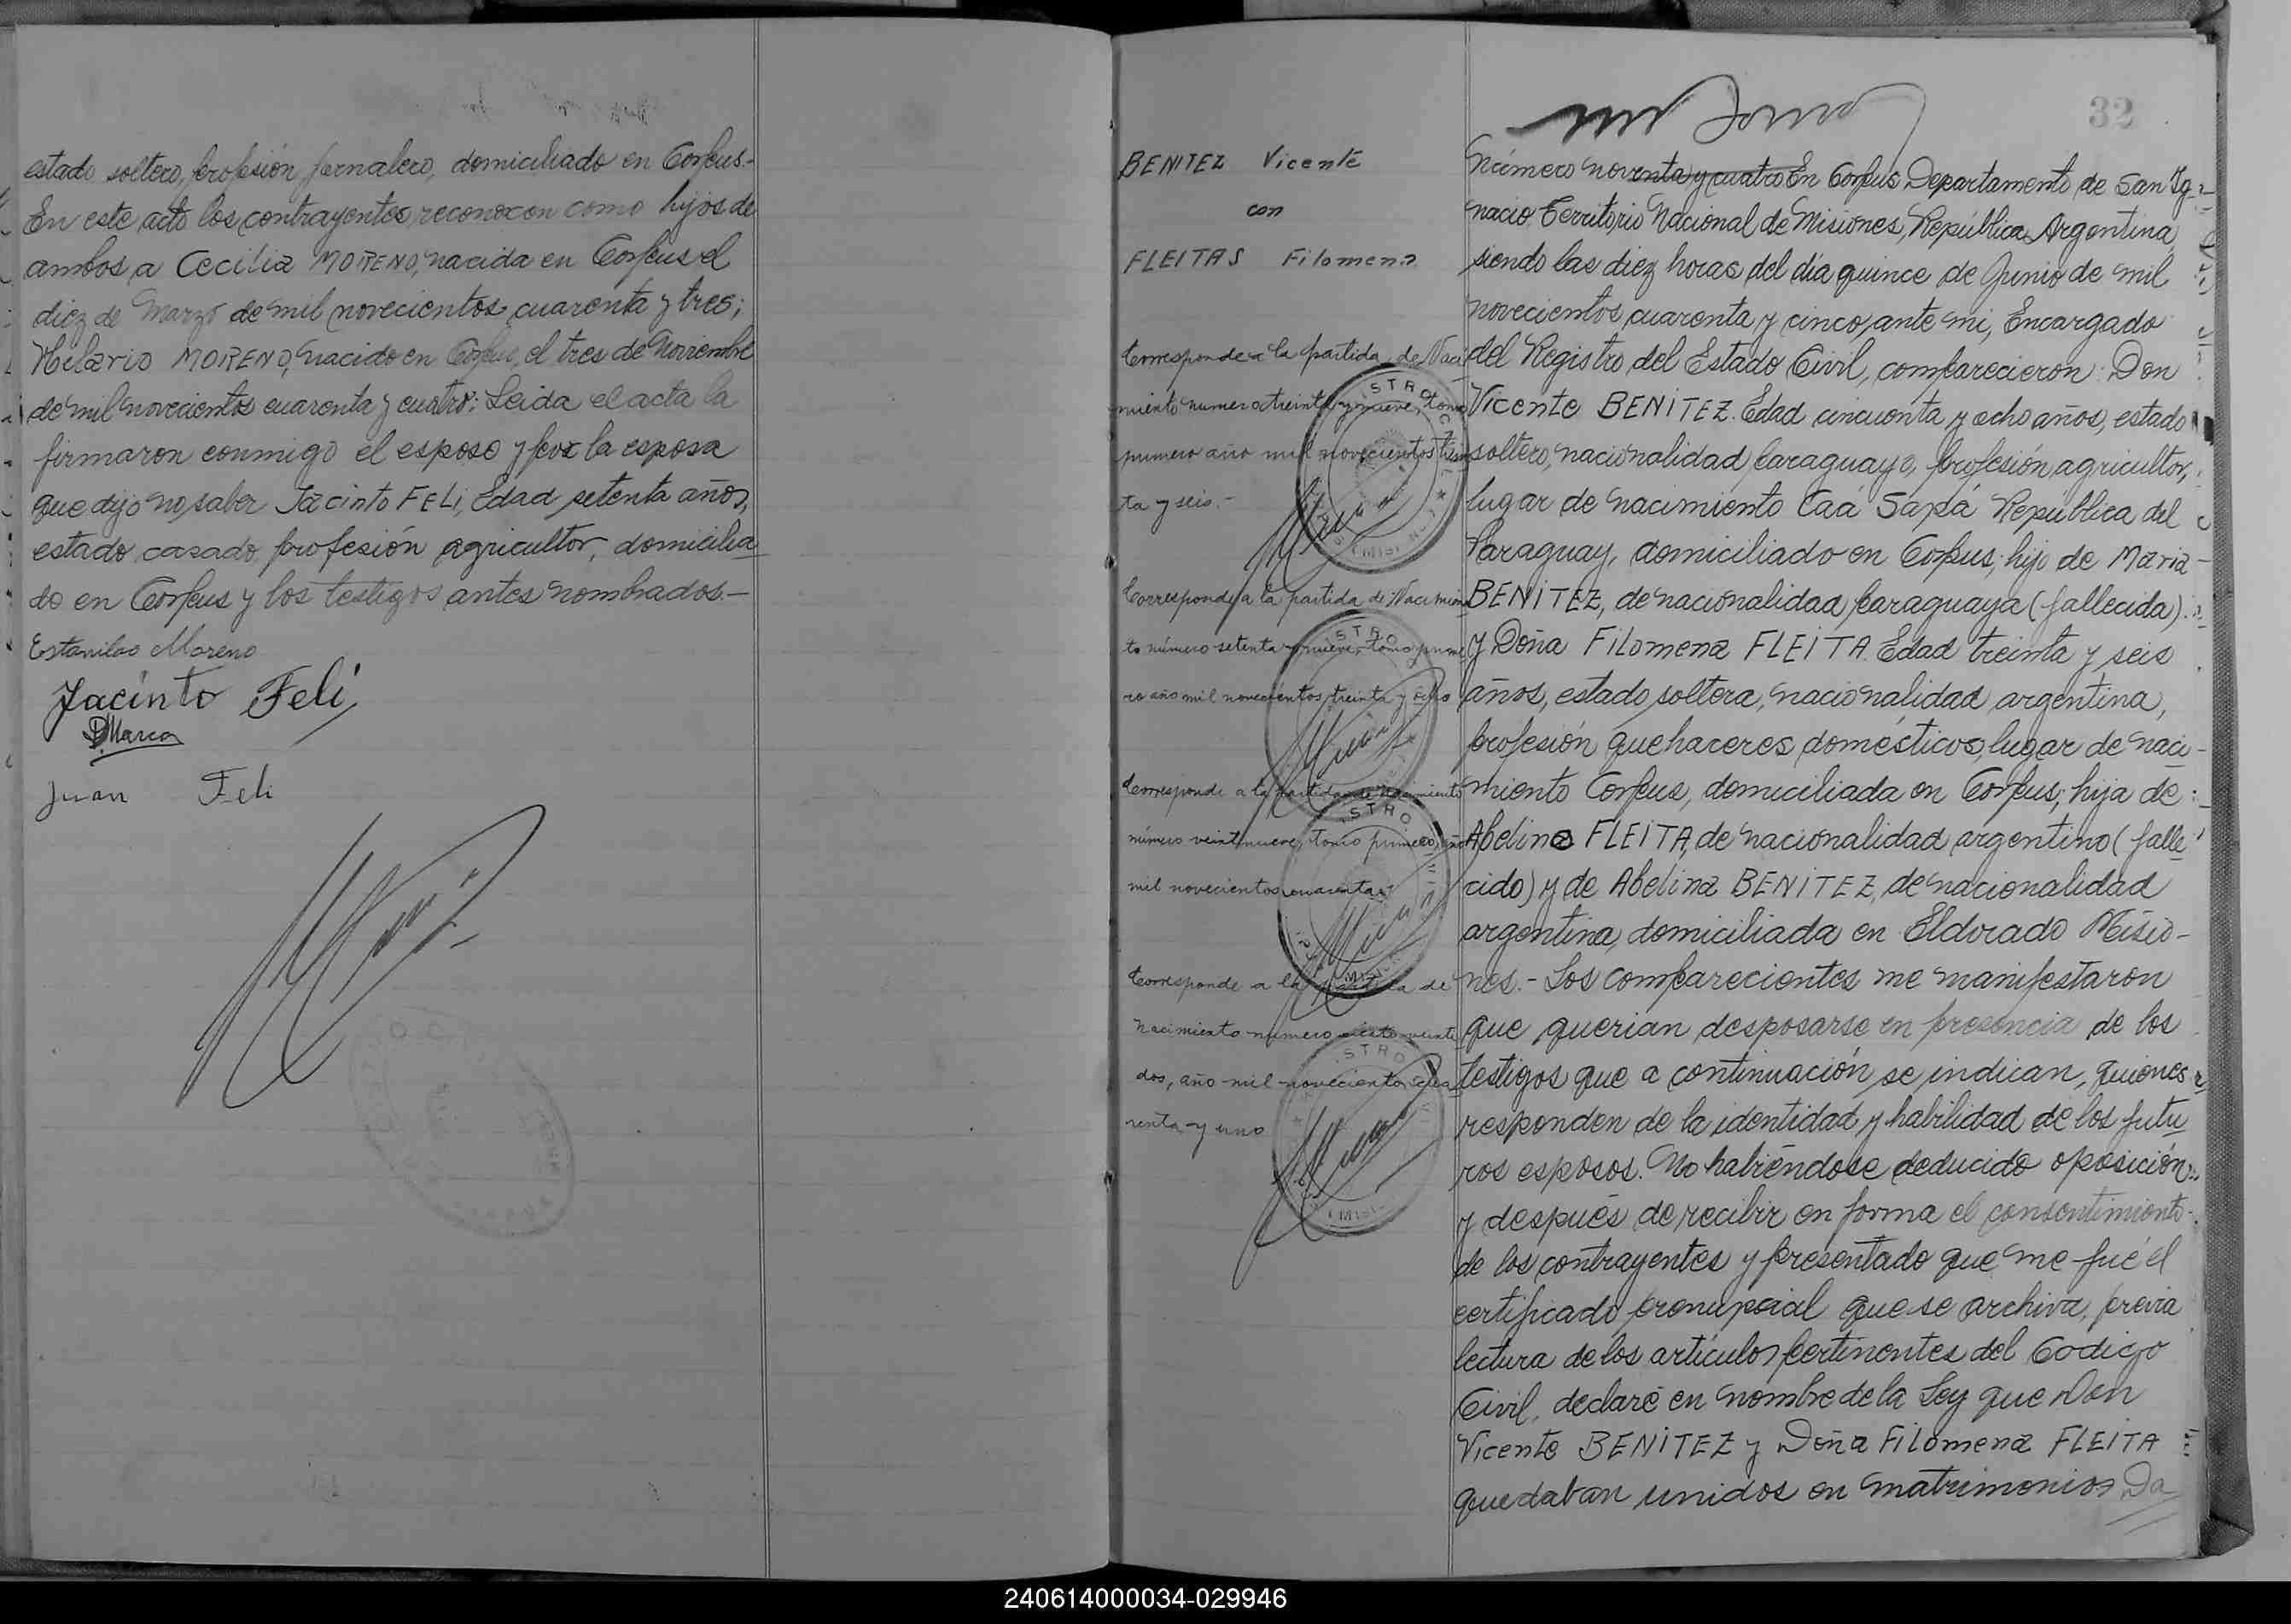 estado soltero, profesión jornalero, domiciliado en Corpus.-
En este acto los contrayentes reconocen como hijos de
ambos a Cecilia MORENO, nacida en Corpus el
diez de Marzo de mil novecientos cuarenta y tres;
Hilario MORENO, nacido en Corpus, el tres de Noviembre
de mil novecientos cuarenta y cuatro: Leida el acta la
firmaron conmigo el esposo y por la esposa
que dijo no saber Jacinto FELI, Edad setenta años,
estado casado, profesión agricultor, domicilia
do en Corpus y los testigos antes nombrados.-
Estanilao Moreno
Jacinto Feli
Juan Feli
32
BENITEZ Vicente
con
FLEITAS Filomena
Corresponde a la partida de Naci
miento numero treinta y nueve, tomo
primero año mil novecientos trein
ta y seis.-
Corresponde a la partida de Nacimien
to número setenta y nueve, tomo prime
ro año mil novecientos treinta y ocho
Corresponde a la partida de Nacimiento
número veintinueve, tomo primero, año
mil novecientos cuarenta
Corresponde a la partida de
nacimiento numero ciento veinte
dos, año mil novecientos cua
renta y uno
Número noventa y cuatro En Corpus Departamento de San Ig-
nacio Territorio Nacional de Misiones, República Argentina
siendo las diez horas del día quince de Junio de mil
novecientos cuarenta y cinco, ante mi, Encargado
del Registro del Estado Civil, comparecieron: Don
Vicente BENITEZ. Edad cincuenta y ocho años, estado
soltero, nacionalidad paraguayo, profesión agricultor,
lugar de nacimiento Caá Sapá República del
Paraguay, domiciliado en Corpus, hijo de Maria
BENITEZ, de nacionalidad paraguaya (fallecida).
y Doña Filomena FLEITA. Edad treinta y seis
años, estado soltera, nacionalidad argentina,
profesión quehaceres domésticos, lugar de naci-
miento Corpus, domiciliada en Corpus, hija de
Abelino FLEITA, de nacionalidad argentino (falle
cido) y de Abelina BENITEZ, de nacionalidad
argentina, domiciliada en Eldorado Misio-
nes.- Los comparecientes me manifestaron
que querian desposarse en presencia de los
testigos que a continuación se indican, quienes
responden de la identidad y habilidad de los futu
ros esposos. No habiéndose deducido oposición
y después de recibir en forma el consentimiento
de los contrayentes y presentado que me fué el
certificado prenupcial que se archiva, previa
lectura de los artículos pertinentes del Codigo
Civil, declaré en nombre de la Ley que Don
Vicente BENITEZ y Doña Filomena FLEITA
quedaban unidos en matrimonios Da
240614000034-029946